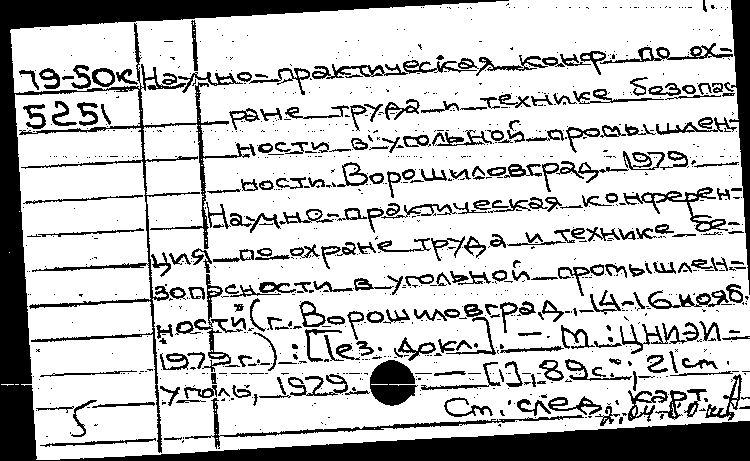 79-50к Научно-практическая конф. по ох-
5251 ране труда и технике безопас-
ности в угольной промышлен-
ности. Ворошиловград. 1979.
Научно-практическая конферен-
ция по охране труда и технике бе-
зопасности в угольной промышлен-
ности (г. Ворошиловград, 14-16 нояб.
1979 г.) : [Тез. докл.]. — М. : ЦНИЭИ-
уголь, 1979. — [1], 89 с. ; 21 см.
5 Ст. след. карт.